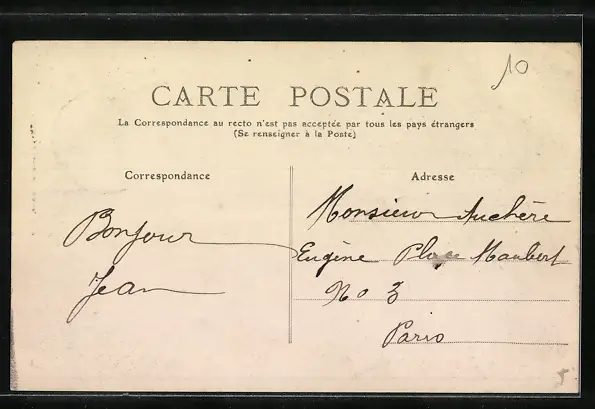 10
CARTE POSTALE
La Correspondance au recto n'est pas acceptée par tous les pays étrangers
(Se renseigner à la Poste)
Correspondance
Bonjour
Jean
Adresse
Monsieur Auchère
Eugène Place Maubert
No 3
Paris